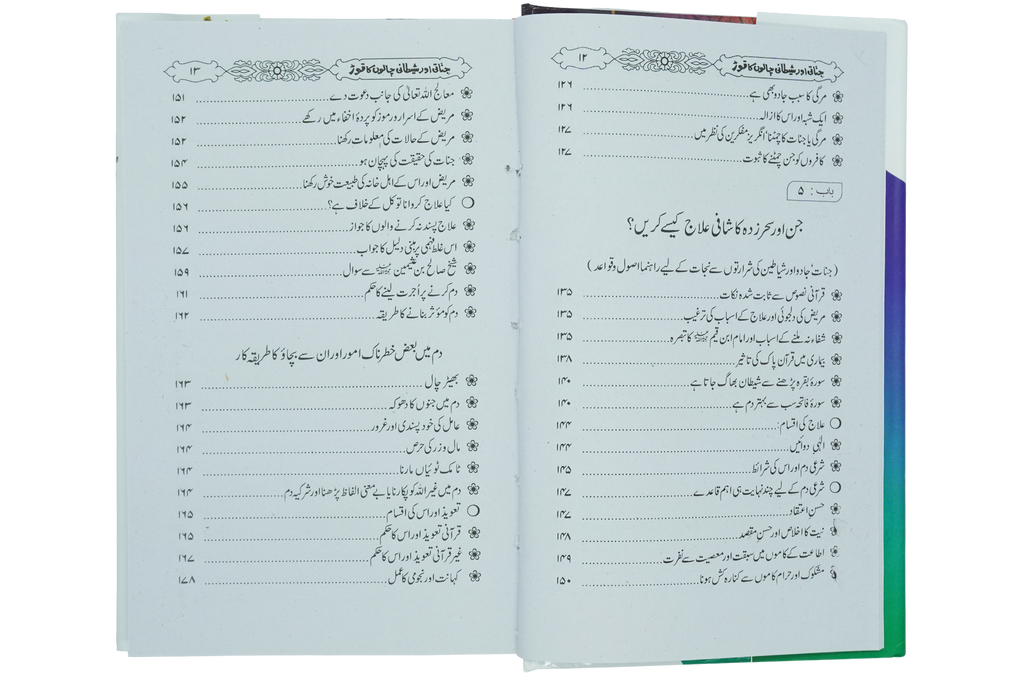 جناتی اور شیطانی چالوں کا توڑ ۱۲
مرگی کا سبب جادو بھی ہے ۱۲۶
ایک شبہ اور اس کا ازالہ ۱۲۶
مرگی یا جنات کا چمٹنا‘ انگریز مفکرین کی نظر میں ۱۲۷
کافروں کو جن چمٹنے کا ثبوت ۱۲۷
باب : ۵
جن اور سحر زدہ کا شافی علاج کیسے کریں؟
(جنات‘ جادو اور شیاطین کی شرارتوں سے نجات کے لیے راہنما اصول و قواعد)
قرآنی نصوص سے ثابت شدہ نکات ۱۳۵
مریض کی دلجوئی اور علاج کے اسباب کی ترغیب ۱۳۵
شفاء نہ ملنے کے اسباب اور امام ابن قیم کا تبصرہ ۱۳۵
بیماری میں قرآن پاک کی تاثیر ۱۳۸
سورۂ بقرہ پڑھنے سے شیطان بھاگ جاتا ہے ۱۴۰
سورۂ فاتحہ سب سے بہتر دم ہے ۱۴۰
علاج کی اقسام: ۱۴۴
الٰہی دوائیں ۱۴۴
شرعی دم اور اس کی شرائط ۱۴۵
شرعی دم کے لیے چند نہایت ہی اہم قاعدے ۱۴۷
حسن اعتقاد ۱۴۷
نیت کا اخلاص اور حسن مقصد ۱۴۸
اطاعت کے کاموں میں سبقت اور معصیت سے نفرت ۱۴۹
مشکوک اور حرام کاموں سے کنارہ کش ہونا ۱۵۰
جناتی اور شیطانی چالوں کا توڑ ۱۳
معالج اللہ تعالیٰ کی جانب دعوت دے ۱۵۱
مریض کے اسرار و رموز کو پردۂ اخفاء میں رکھے ۱۵۲
مریض کے حالات کی معلومات رکھنا ۱۵۲
جنات کی حقیقت کی پہچان ہو ۱۵۴
مریض اور اس کے اہل خانہ کی طبیعت خوش رکھنا ۱۵۵
کیا علاج کروانا توکل کے خلاف ہے؟ ۱۵۶
علاج پسند نہ کرنے والوں کا جواز ۱۵۶
اس غلط فہمی پر مبنی دلیل کا جواب ۱۵۷
شیخ صالح بن عثیمین سے سوال ۱۵۹
دم کرنے پر اُجرت لینے کا حکم ۱۶۱
دم کو مؤثر بنانے کا طریقہ ۱۶۲
دم میں بعض خطرناک امور اور ان سے بچاؤ کا طریقہ کار
بھیڑ چال ۱۶۳
دم میں جنوں کا دھوکہ ۱۶۳
عامل کی خود پسندی اور غرور ۱۶۴
مال و زر کی حرص ۱۶۴
ٹامک ٹوئیاں مارنا ۱۶۴
دم میں غیر اللہ کو پکارنا یا بے معنی الفاظ پڑھنا اور شرکیہ دم ۱۶۴
تعویذ اور اس کی اقسام ۱۶۵
قرآنی تعویذ اور اس کا حکم ۱۶۵
غیر قرآنی تعویذ اور اس کا حکم ۱۶۷
کہانت اور نجومی کا عمل ۱۷۸